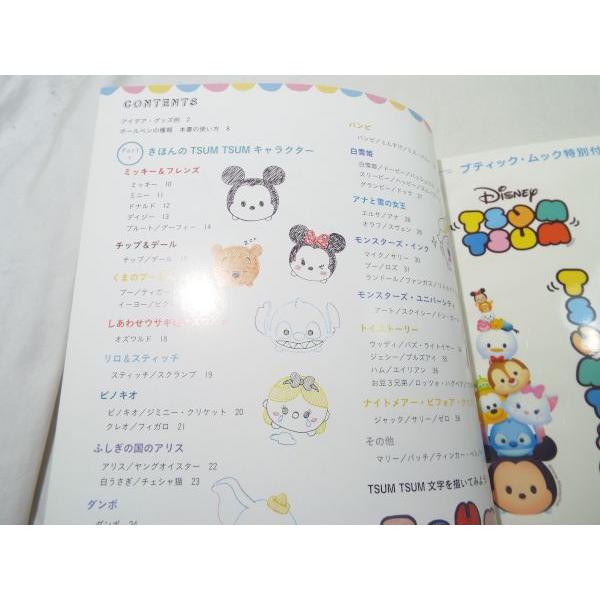 CONTENTS
アイデア・グッズ例 2
ボールペンの種類 本書の使い方 8
Part 1
きほんの TSUM TSUM キャラクター
ミッキー&フレンズ
ミッキー 10
ミニー 11
ドナルド 12
デイジー 13
プルート/グーフィー 14
チップ&デール
チップ/デール 15
くまのプー
プー/ティガー
イーヨー/ピグ
しあわせウサギ
オズワルド 18
リロ&スティッチ
スティッチ/スクランプ 19
ピノキオ
ピノキオ/ジミニー・クリケット 20
クレオ/フィガロ 21
ふしぎの国のアリス
アリス/ヤングオイスター 22
白うさぎ/チェシャ猫 23
ダンボ
ダンボ 24
バンビ
バンビ/とんすけ/ミス・
白雪姫
白雪姫/ドーピー/
スリーピー/ハッピー/
グランピー/ドック
アナと雪の女王
エルサ/アナ 28
オラフ/スヴェン
モンスターズ・インク
マイク/サリー 30
ブー/ロズ 31
ランドール/ファンガス/
モンスターズ・ユニバーシティ
アート/スクイシー/ドン・
トイ・ストーリー
ウッディ/バズ・ライトイヤー
ジェシー/ブルズアイ 35
ハム/エイリアン 36
お豆3兄弟/ロッツォ・ハグベア
ナイトメアー・ビフォア・
ジャック/サリー/ゼロ 38
その他
マリー/パッチ/ティンカー・ベル
TSUM TSUM 文字を描いてみよう
ブティック・ムック特別付
Disney
TSUM
TSUM